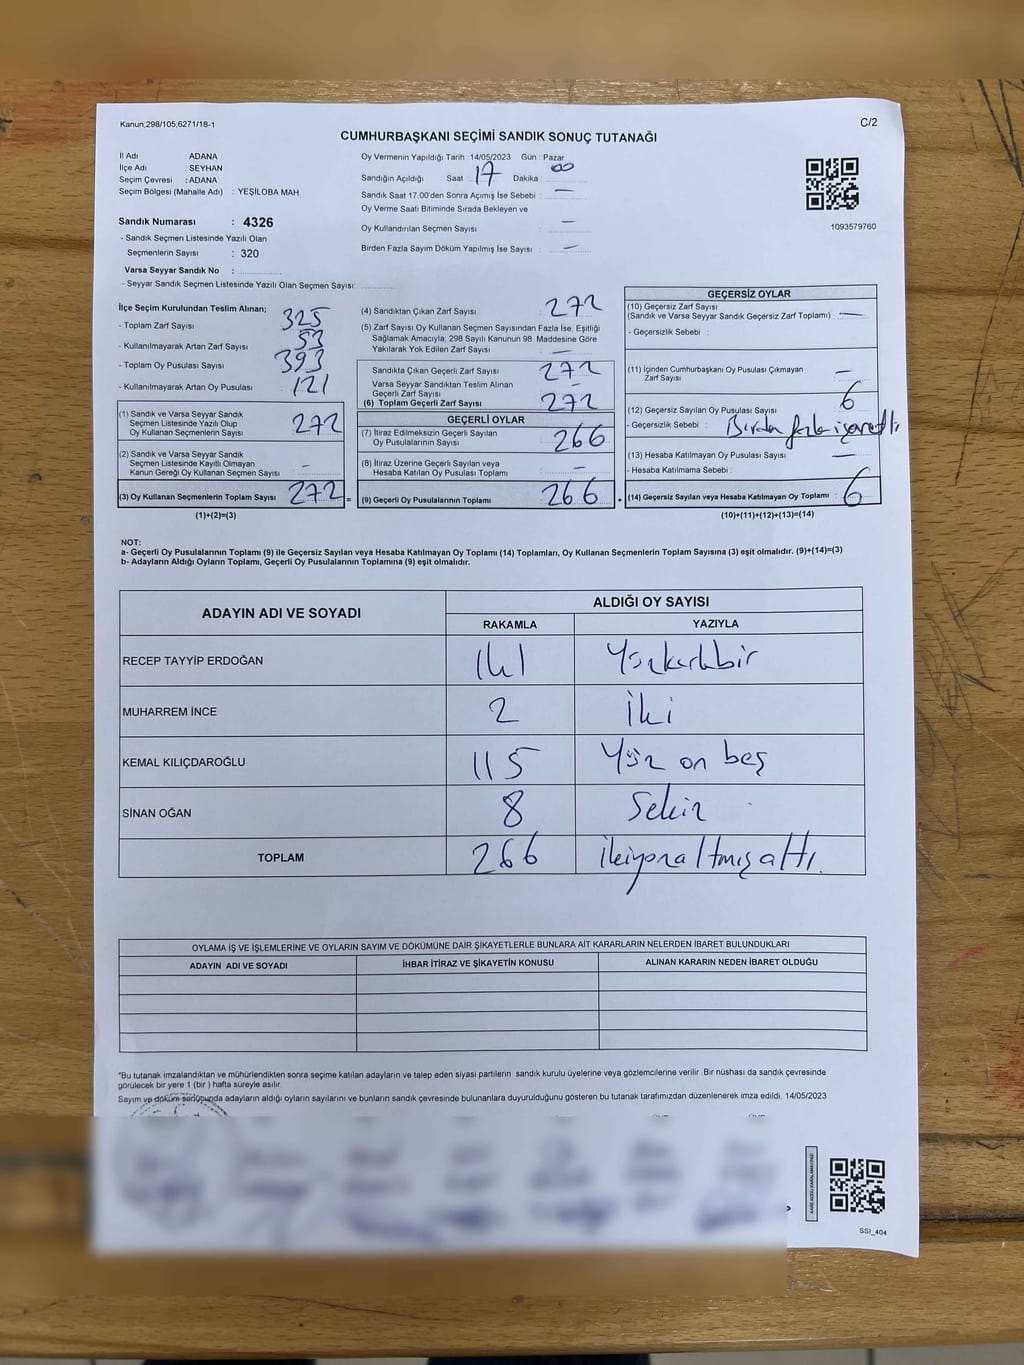 Kanun;298/105,6271/18-1
C/2
CUMHURBAŞKANI SEÇİMİ SANDIK SONUÇ TUTANAĞI
İl Adı : ADANA
İlçe Adı : SEYHAN
Seçim Çevresi : ADANA
Seçim Bölgesi (Mahalle Adı) : YEŞİLOBA MAH.
Sandık Numarası : 4326
- Sandık Seçmen Listesinde Yazılı Olan
Seçmenlerin Sayısı : 320
Varsa Seyyar Sandık No :
- Seyyar Sandık Seçmen Listesinde Yazılı Olan Seçmen Sayısı:
Oy Vermenin Yapıldığı Tarih : 14/05/2023 Gün : Pazar
Sandığın Açıldığı Saat : 17 Dakika : 00
Sandık Saat 17.00'den Sonra Açımış İse Sebebi : —
Oy Verme Saati Bitiminde Sırada Bekleyen ve
Oy Kullandırılan Seçmen Sayısı : —
Birden Fazla Sayım Döküm Yapılmış İse Sayısı : —
1093579760
İlçe Seçim Kurulundan Teslim Alınan;
- Toplam Zarf Sayısı : 325
- Kullanılmayarak Artan Zarf Sayısı : 53
- Toplam Oy Pusulası Sayısı : 393
- Kullanılmayarak Artan Oy Pusulası : 121
(1) Sandık ve Varsa Seyyar Sandık
Seçmen Listesinde Yazılı Olup
Oy Kullanan Seçmenlerin Sayısı : 272
(2) Sandık ve Varsa Seyyar Sandık
Seçmen Listesinde Kayıtlı Olmayan
Kanun Gereği Oy Kullanan Seçmen Sayısı : -
(3) Oy Kullanan Seçmenlerin Toplam Sayısı : 272 =
(1)+(2)=(3)
(4) Sandıktan Çıkan Zarf Sayısı : 272
(5) Zarf Sayısı Oy Kullanan Seçmen Sayısından Fazla İse, Eşitliği
Sağlamak Amacıyla; 298 Sayılı Kanunun 98. Maddesine Göre
Yakılarak Yok Edilen Zarf Sayısı : —
Sandıkta Çıkan Geçerli Zarf Sayısı : 272
Varsa Seyyar Sandıktan Teslim Alınan
Geçerli Zarf Sayısı : -
(6) Toplam Geçerli Zarf Sayısı : 272
GEÇERLİ OYLAR
(7) İtiraz Edilmeksizin Geçerli Sayılan
Oy Pusulalarının Sayısı : 266
(8) İtiraz Üzerine Geçerli Sayılan veya
Hesaba Katılan Oy Pusulası Toplamı : —
(9) Geçerli Oy Pusulalarının Toplamı : 266
GEÇERSİZ OYLAR
(10) Geçersiz Zarf Sayısı
(Sandık ve Varsa Seyyar Sandık Geçersiz Zarf Toplamı) : —
- Geçersizlik Sebebi :
(11) İçinden Cumhurbaşkanı Oy Pusulası Çıkmayan
Zarf Sayısı : —
(12) Geçersiz Sayılan Oy Pusulası Sayısı : 6
- Geçersizlik Sebebi : Birden fazla işaretli
(13) Hesaba Katılmayan Oy Pusulası Sayısı : —
- Hesaba Katılmama Sebebi :
(14) Geçersiz Sayılan veya Hesaba Katılmayan Oy Toplamı : 6
(10)+(11)+(12)+(13)=(14)
NOT:
a- Geçerli Oy Pusulalarının Toplamı (9) ile Geçersiz Sayılan veya Hesaba Katılmayan Oy Toplamı (14) Toplamları, Oy Kullanan Seçmenlerin Toplam Sayısına (3) eşit olmalıdır. (9)+(14)=(3)
b- Adayların Aldığı Oyların Toplamı, Geçerli Oy Pusulalarının Toplamına (9) eşit olmalıdır.
ADAYIN ADI VE SOYADI ALDIĞI OY SAYISI
RAKAMLA YAZIYLA
RECEP TAYYİP ERDOĞAN 141 Yüzkırkbir
MUHARREM İNCE 2 İki
KEMAL KILIÇDAROĞLU 115 Yüz on beş
SİNAN OĞAN 8 Sekiz
TOPLAM 266 ikiyüzaltmışaltı.
OYLAMA İŞ VE İŞLEMLERİNE VE OYLARIN SAYIM VE DÖKÜMÜNE DAİR ŞİKAYETLERLE BUNLARA AİT KARARLARIN NELERDEN İBARET BULUNDUKLARI
ADAYIN ADI VE SOYADI İHBAR İTİRAZ VE ŞİKAYETİN KONUSU ALINAN KARARIN NEDEN İBARET OLDUĞU
*Bu tutanak imzalandıktan ve mühürlendikten sonra seçime katılan adayların ve talep eden siyasi partilerin sandık kurulu üyelerine veya gözlemcilerine verilir. Bir nüshası da sandık çevresinde
görülecek bir yere 1 (bir ) hafta süreyle asılır.
Sayım ve döküm sonucunda adayların aldığı oyların sayılarını ve bunların sandık çevresinde bulunanlara duyurulduğunu gösteren bu tutanak tarafımızdan düzenlenerek imza edildi. 14/05/2023
SSI_404